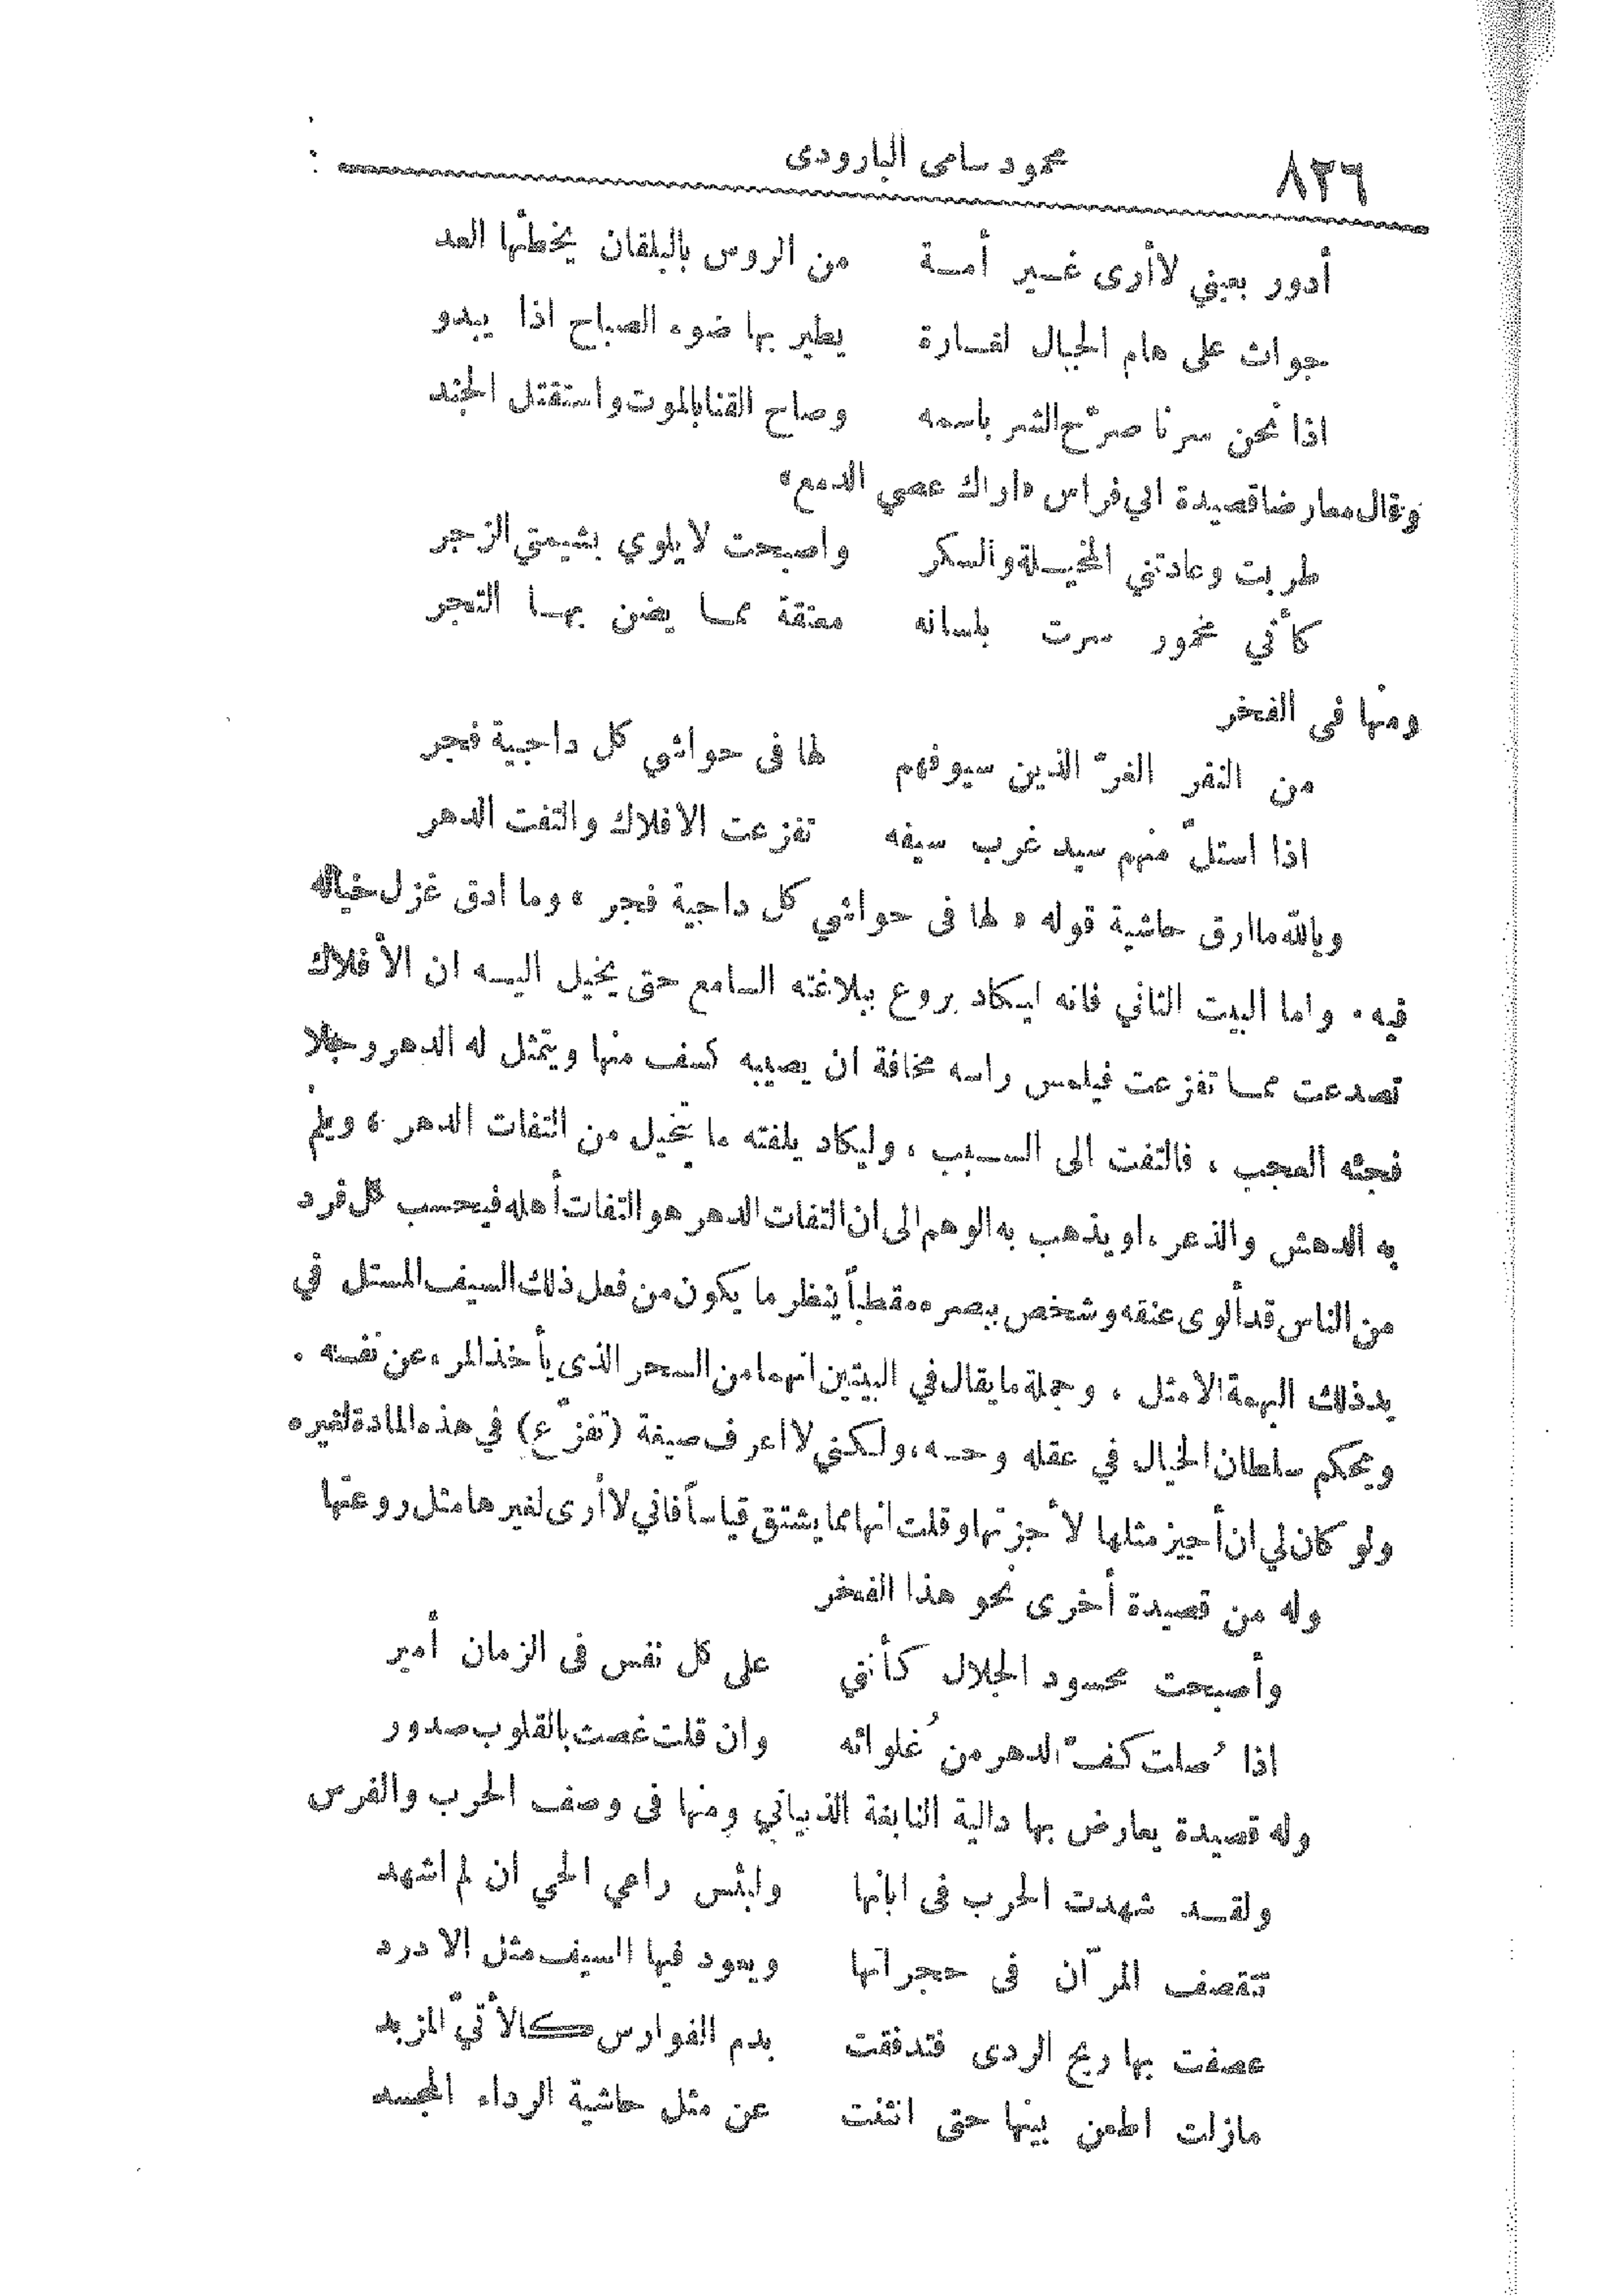 ٨٢٦ محمود سامى البارودى
أدور بعيني لاأرى غير أمة من الروس بالبلقان يخطئها العد
جواث على هام الجبال لغارة يطير بها ضوء الصباح اذا يبدو
اذا نحن سرنا صرّح الشر باسمه وصاح القنا بالموت واستقتل الجند
وقال معارضا قصيدة ابي فراس «اراك عصي الدمع»
طربت وعادتني المخيلة والسكر واصبحت لا يلوي بشيمتي الزجر
كأني مخمور سرت بلسانه معتقة مما يضن بها التجر
ومنها فى الفخر
من النفر الغرّ الذين سيوفهم لها فى حواشي كل داجية فجر
اذا استلّ منهم سيد غرب سيفه تفزعت الافلاك والتفت الدهر
وبالله ما ارق حاشية قوله « لها فى حواشي كل داجية فجر » وما ادق غزل خياله
فيه . واما البيت الثاني فانه ليكاد يروع ببلاغته السامع حتى يخيل اليه ان الأفلاك
تصدعت مما تفزعت فيلمس راسه مخافة ان يصيبه كسف منها ويتمثل له الدهر وجلا
فجئه العجب ، فالتفت الى السبب ، وليكاد يلفته ما تخيل من التفات الدهر ، ويلم
به الدهش والذعر ، او يذهب به الوهم الى ان التفات الدهر هو التفات أهله فيحسب كل فرد
من الناس قد ألوى عنقه وشخص ببصره مقطباً ينظر ما يكون من فعل ذلك السيف المستل في
يد ذلك البهمة الامثل ، وجملة ما يقال في البيتين انهما من السحر الذى يأخذ المرء عن نفسه .
ويحكم سلطان الخيال في عقله وحسه ، ولكني لا اعرف صيغة (تفزّع) في هذه المادة لغيره
ولو كان لي ان أجيز مثلها لأجزتها وقلت انها مما يشتق قياساً فاني لا أرى لغيرها مثل روعتها
وله من قصيدة أخرى نحو هذا الفخر
وأصبحت محسود الجلال كأنني على كل نفس فى الزمان أمير
اذا صُلت كفّ الدهر من غُلوائه وان قلت غصت بالقلوب صدور
وله قصيدة يعارض بها دالية النابغة الذبياني ومنها فى وصف الحرب والفرس
ولقد شهدت الحرب فى ابانها ولبئس راعي الحي ان لم اشهد
تتقصف المرّان فى حجراتها ويعود فيها السيف مثل الادرد
عصفت بها ريح الردى فتدفقت بدم الفوارس كالأتيّ المزبد
مازلت اطعن بينها حتى انثنت عن مثل حاشية الرداء المجسد